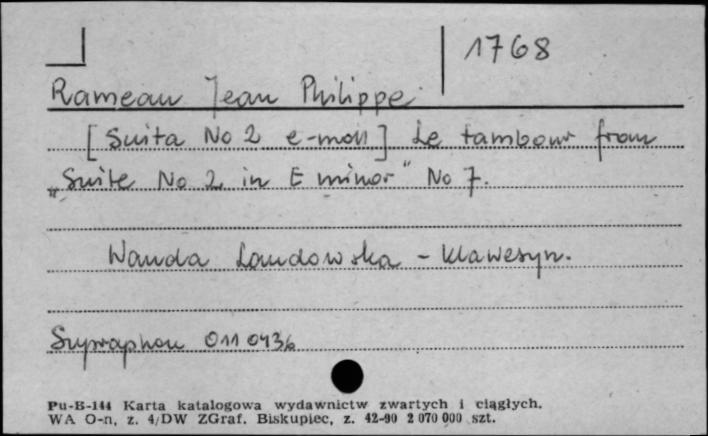 1768
Rameau Jean Philippe
[Suita No 2 e-moll] Le tambour from
„Suite No 2 in E minor" No 7.
Wanda Landowska - klawesyn.
Supraphon 011 0436
Pu-B-144 Karta katalogowa wydawnictw zwartych i ciągłych.
WA O-n, z. 4/DW ZGraf. Biskupiec, z. 42-90 2 070 000 szt.